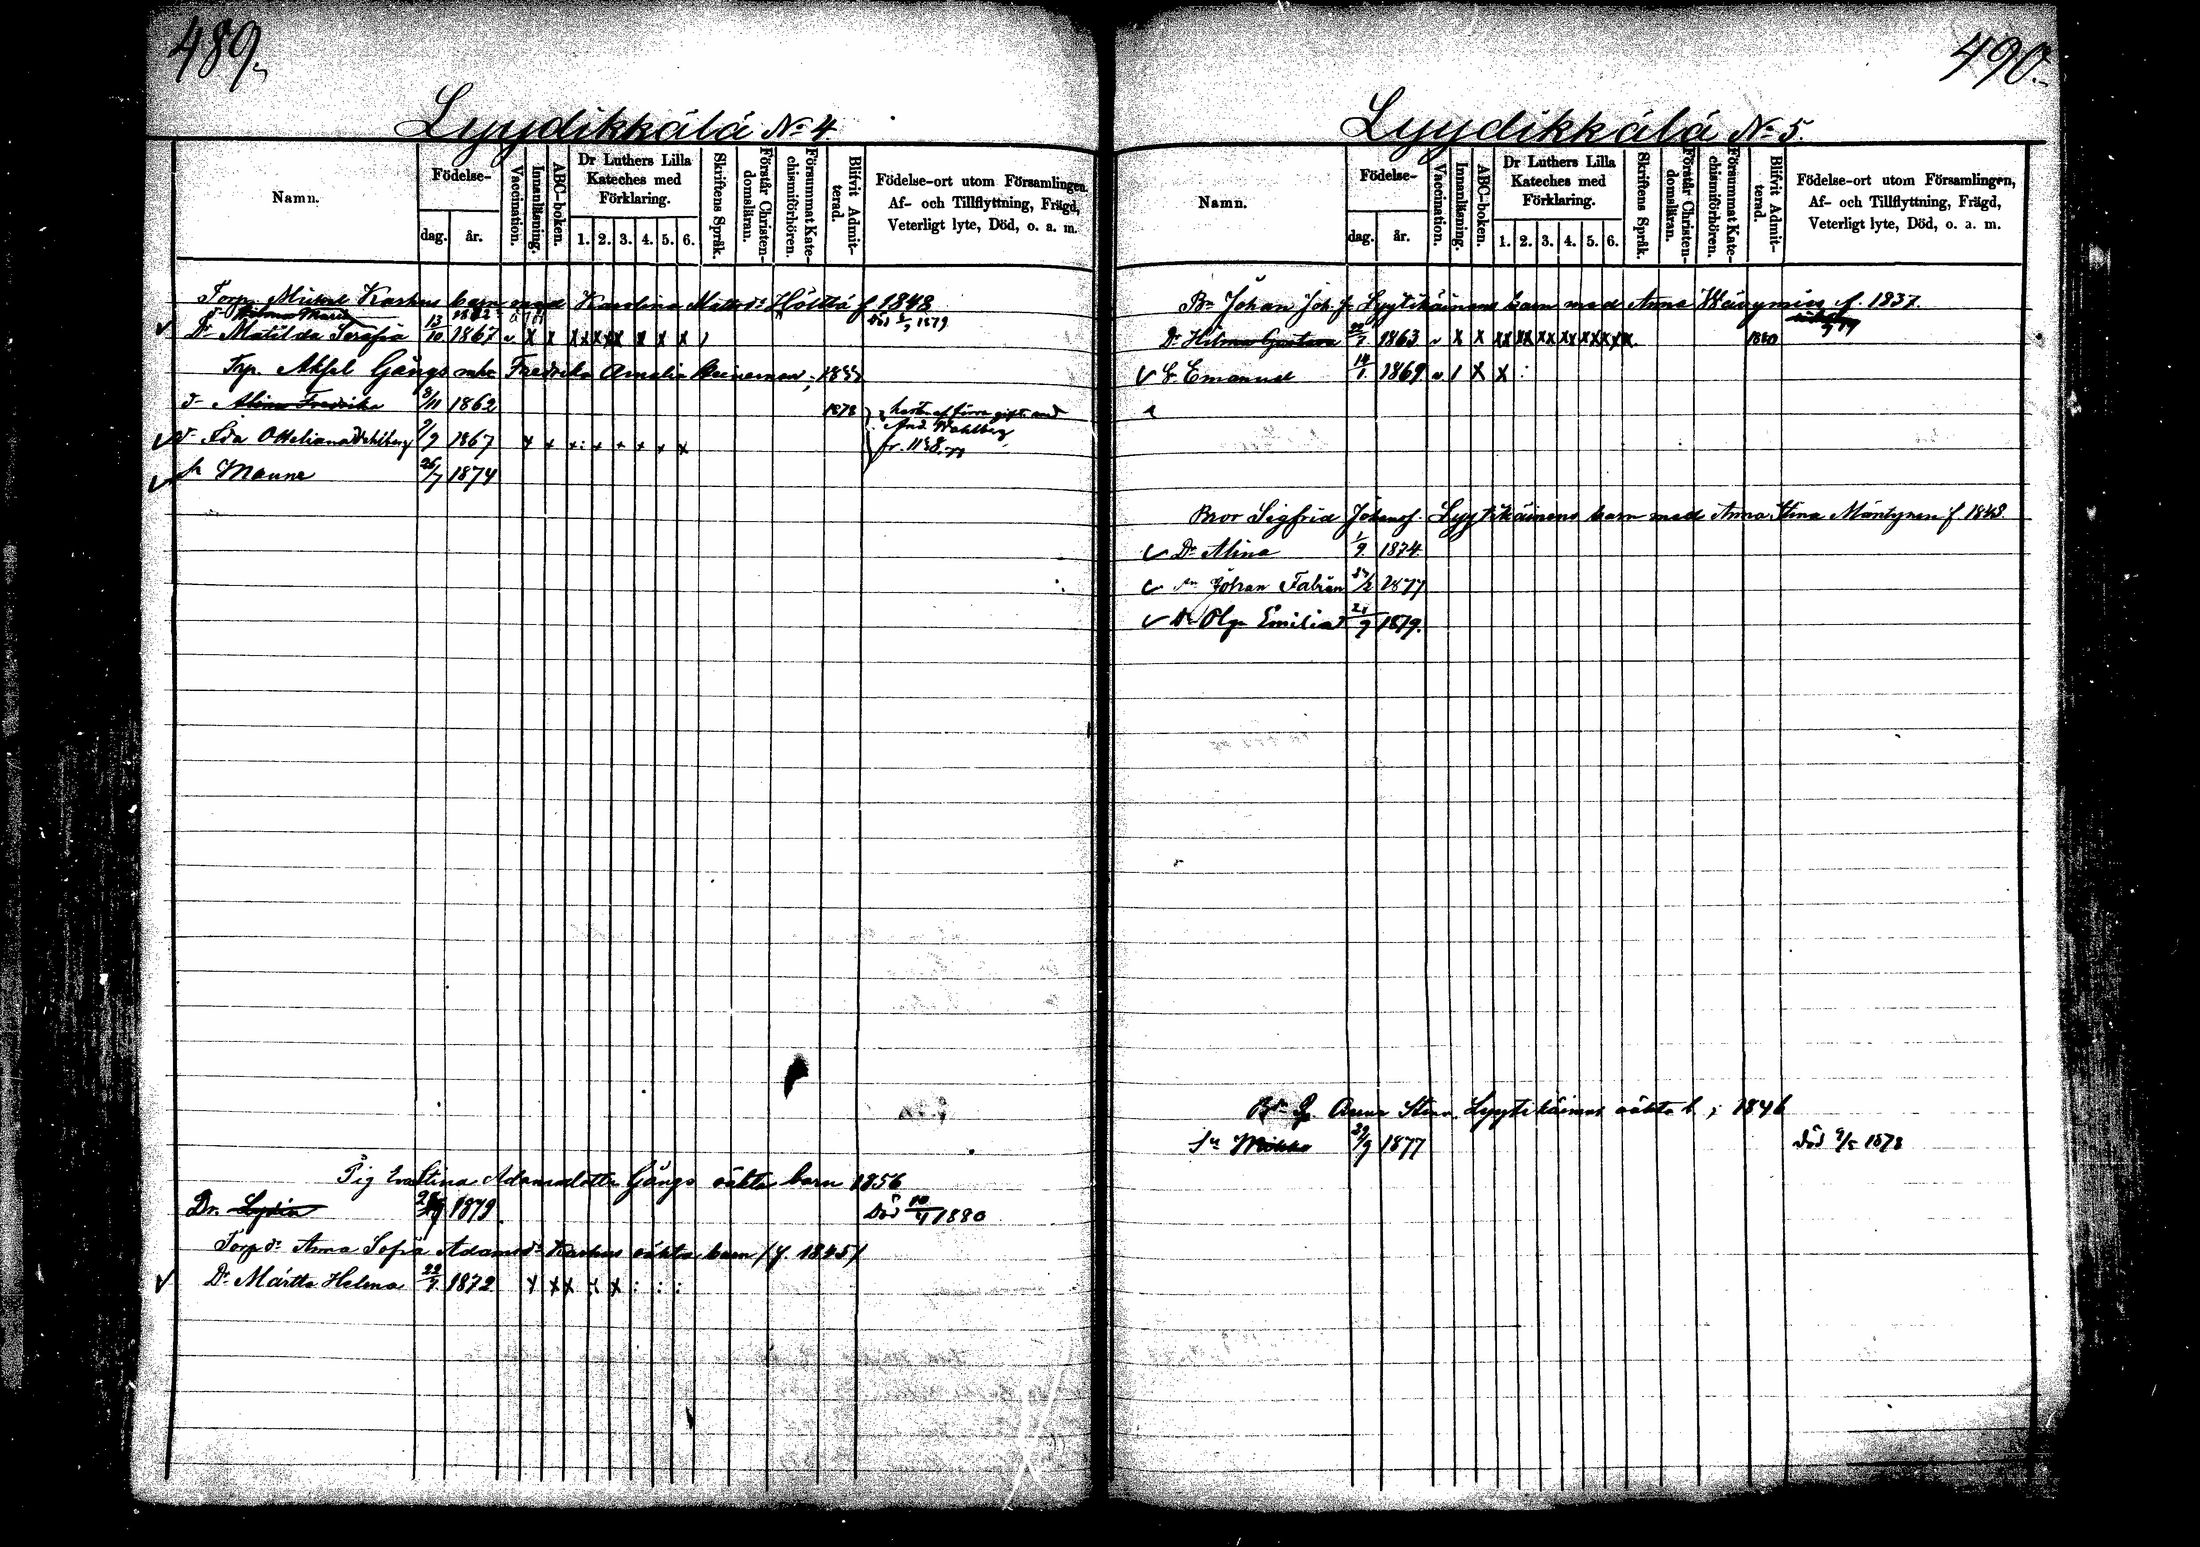 489.
Lyydikkälä No 4.
Namn.
Födelse-
dag.
år.
Vaccination.
Innanläsning.
ABC-boken.
Dr Luthers Lilla
Kateches med
Förklaring.
1. 2. 3. 4. 5. 6.
Skriftens Språk.
Förstår Christen-
domsläran.
Försummat Kate-
chismiförhören.
Blifvit Admit-
terad.
Födelse-ort utom Församlingen,
Af- och Tillflyttning, Frägd,
Veterligt lyte, Död, o. a. m.
Torp. Mickel Karhus barn med Karolina Mattsdr Hölttä f 1848
Maria 1862 Död 1879
Dr Matilda Serafia 13/10 1867 v x x x x x x x x x
Torp. Aksel Gångs med Fredrika Amalia
dr Alina Fredrika 8/11 1862 1878 gift med
And. Wahlberg
dr Ida Ottiliana Wahlberg 9/9 1867 x x x: x x x x x
sn Manne 26/7 1874
Pig Eva Stina Adamsdotter Gångs oäkta barn 1856
Dr. Lydia 1879 Död 10/4 1880
Torp dr Anna Sofia Adamsdr Karhus oäkta barn /f. 1845/
Dr Märtta Helena 22/9 1872 x x x : x : : :
490.
Lyydikkälä No 5.
Namn.
Födelse-
dag.
år.
Vaccination.
Innanläsning.
ABC-boken.
Dr Luthers Lilla
Kateches med
Förklaring.
1. 2. 3. 4. 5. 6.
Skriftens Språk.
Förstår Christen-
domsläran.
Försummat Kate-
chismiförhören.
Blifvit Admit-
terad.
Födelse-ort utom Församlingen,
Af- och Tillflyttning, Frägd,
Veterligt lyte, Död, o. a. m.
Bn Johan Joh. f. Lyytikäinens barn med Anna f. 1837.
Dr Hilma Gustava 1863 v x x xx xx xx xx xx xx 1880
S Emanuel 14/1 1869 v / x x :
Bror Sigfrid Johansf. Lyytikäinens barn med Anna Stina Mäntynen f 1848.
Dr Alina 1/9 1874
sn Johan Fabian 1877
Dr Olga Emilia 21/9 1879.
Anna Stina Lyytikäinens oäkta b; 1846
Sn Mikko 29/9 1877 Död 9/5 1878